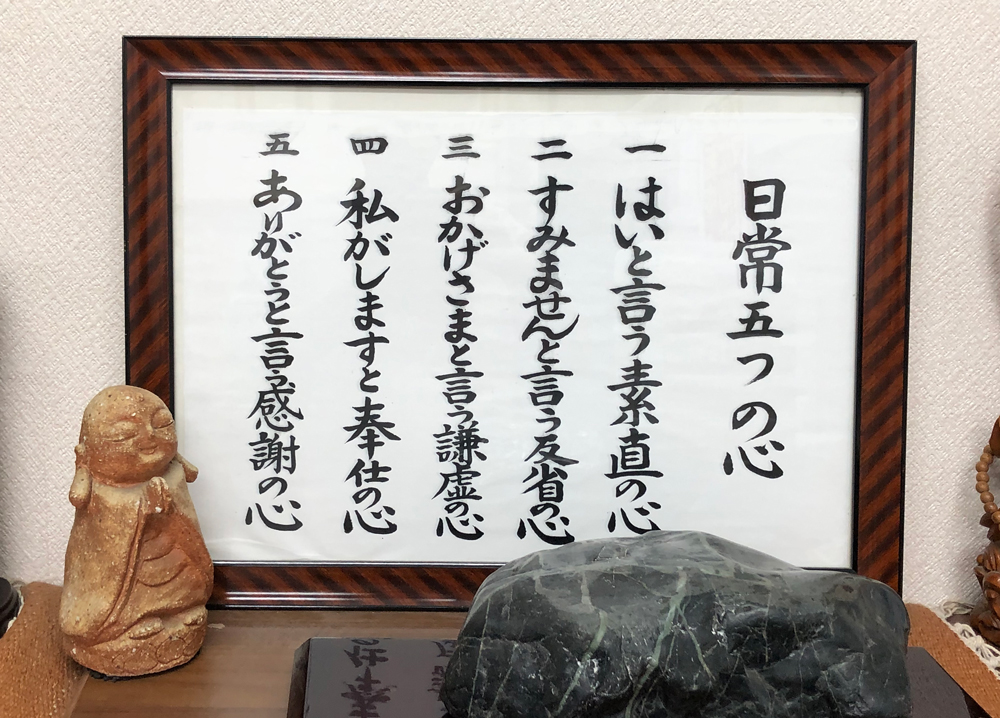 日常五つの心
一 はいと言う素直の心
二 すみませんと言う反省の心
三 おかげさまと言う謙虚の心
四 私がしますと奉仕の心
五 ありがとうと言う感謝の心